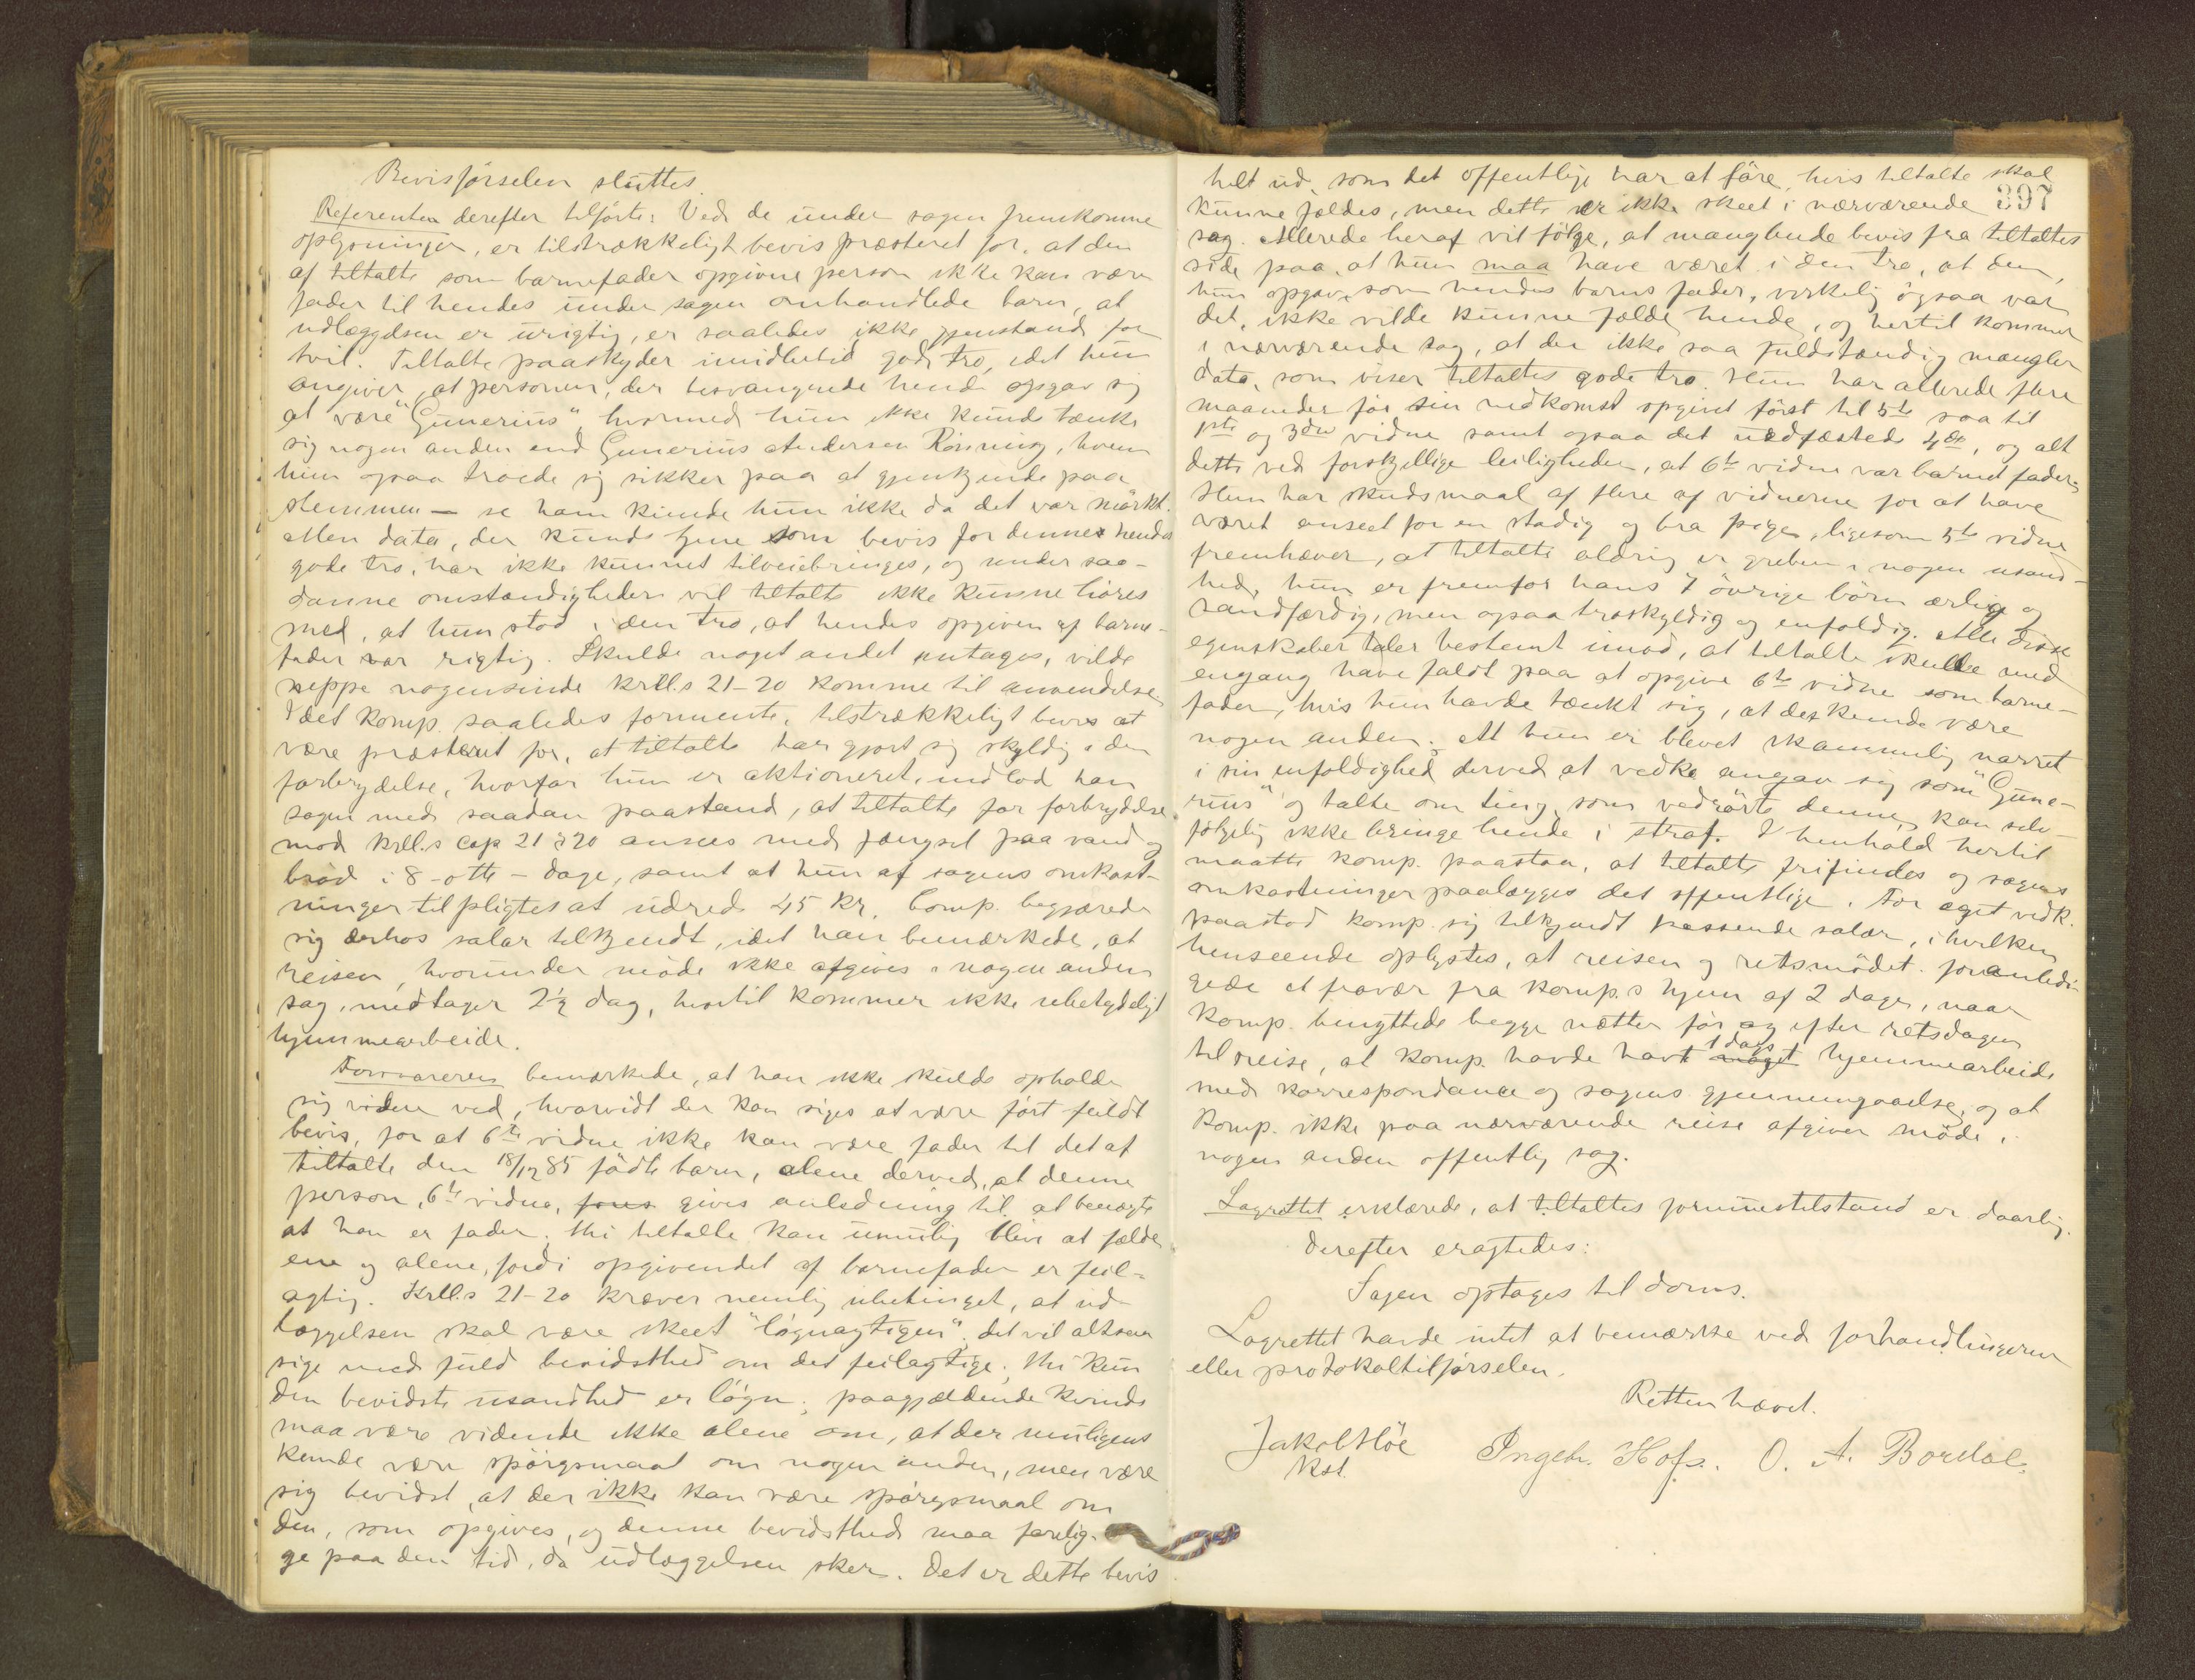 Bevisførselen sluttes.
Referenten derefter tilførte: Ved de under sagen fremkomne
oplysninger, er tilstrækkeligt bevis præsteret for, at den
af tiltalte som barnefader opgivne person ikke kan være
fader til hendes under sagen omhandlede barn, at
udlæggelsen er urigtig, er saaledes ikke gjenstand for
tvil. Tiltalte paaskyder imidlertid god tro, idet hun
angiver, at personen, der besvangrede hende opgav sig
at være "Gunerius", hvormed hun ikke kunde tænke
sig nogen anden end Gunerius Andersen Rönning, hvem
hun ogsaa troede sig sikker paa at gjenkjende paa
stemmen — se ham kunde hun ikke da det var mörkt.
Men data, der kunde tjene som bevis for denne hendes
gode tro, har ikke kunnet tilveiebringes, og under saa-
danne omstændigheder vil tiltalte ikke kunne höres
med, at hun stod i den tro, at hendes opgiven af barne-
fader var rigtig. Skulde noget andet antages, vilde
neppe nogensinde krll.s 21-20 komme til anvendelse
Idet komp. saaledes formente, tilstrækkeligt bevis at
være præsteret for, at tiltalte har gjort sig skyldig i den
forbrydelse, hvorfor hun er aktioneret, indlod han
sagen med saadan paastand, at tiltalte for forbrydelse
mod krll.s cap 21 § 20 ansees med fængsel paa vand og
bröd i 8 - otte - dage, samt at hun af sagens omkost-
ninger tilpligtes at udrede 45 kr. Comp. begjærede
sig derhos salær tilkjendt, idet han bemærkede, at
reisen, hvorunder möde ikke afgives i nogen anden
sag, medtager 2½ dag, hvortil kommer ikke ubetydeligt
hjemmearbeide.
Forsvareren bemærkede, at han ikke skulde opholde
sig videre ved, hvorvidt der kan siges at være fört fuldt
bevis, for at 6te vidne ikke kan være fader til det af
tiltalte den 18/12 85 födte barn, alene derved, at denne
person, 6te vidne, gives anledning til at benægte
at han er fader. Thi tiltalte kan umulig blive at fælde
ene og alene, fordi opgivendet af barnefader er feil-
agtig. Krll.s 21-20 kræver nemlig ubetinget, at ud-
læggelsen skal være skeet "lögnagtigen", det vil altsaa
sige med fuld bevidsthed om det feilagtige, thi kun
den bevidste usandhed er lögn; paagjældende kvinde
maa være vidende ikke alene om, at der muligens
kunde være spörgsmaal om nogen anden, men være
sig bevidst, at der ikke kan være spörgsmaal om
den, som opgives, og denne bevidsthed maa forelig-
ge paa den tid, da udlæggelsen sker. Det er dette bevis
397
helt ud, som det offentlige har at före, hvis tiltalte skal
kunne fældes, men dette er ikke skeet i nærværende
sag. Allerede heraf vil fölge, at manglende bevis fra tiltaltes
side paa, at hun maa have været i den tro, at den,
hun opgav som hendes barns fader, virkelig ogsaa var
det, ikke vilde kunne fælde hende, og hertil kommer
i nærværende sag, at der ikke saa fuldstændig mangler
data, som viser tiltaltes gode tro. Hun har allerede flere
maaneder för sin nedkomst opgivet först til 5te saa til
1ste og 3die vidne samt ogsaa det uedfæstede 4de, og alt
dette ved forskjellige leiligheder, at 6te vidne var barnets fader.
Hun har skudsmaal af flere af vidnerne for at have
været anseet for en stadig og bra pige, ligesom 5te vidne
fremhæver, at tiltalte aldrig er greben i nogen usand-
hed, hun er fremfor hans 7 övrige börn ærlig og
sandfærdig, men ogsaa troskyldig og enfoldig. Alle disse
egenskaber taler bestemt imod, at tiltalte skulde med
engang have faldt paa at opgive 6te vidne som barne-
fader, hvis hun havde tænkt sig, at der kunde være
nogen anden. At hun er blevet skammelig narret
i sin enfoldighed derved at vedk. angav sig som "Gune-
rius" og talte om ting, som vedrörte denne, kan selv-
fölgelig ikke bringe hende i straf. I henhold hertil
maatte komp. paastaa, at tiltalte frifindes og sagens
omkostninger paalægges det offentlige. For eget vedk.
paastod komp. sig tilkjendt passende salær, i hvilken
henseende oplystes, at reisen og retsmödet foranledi-
gede et fravær fra komp.s hjem af 2 dage, naar
komp. benyttede begge nætter för og efter retsdagen
til reise, at komp. havde havt 1 dags hjemmearbeide
med korrespondance og sagens gjennemgaaelse, og at
komp. ikke paa nærværende reise afgiver möde i
nogen anden offentlig sag.
Lagrettet erklærede, at tiltaltes formuestilstand er daarlig.
Derefter eragtedes:
Sagen optages til doms.
Lagrettet havde intet at bemærke ved forhandlingerne
eller protokoltilförselen.
Retten hævet.
Jakob Höe Ingebr. Hofs. O. A. Bordal.
kst.